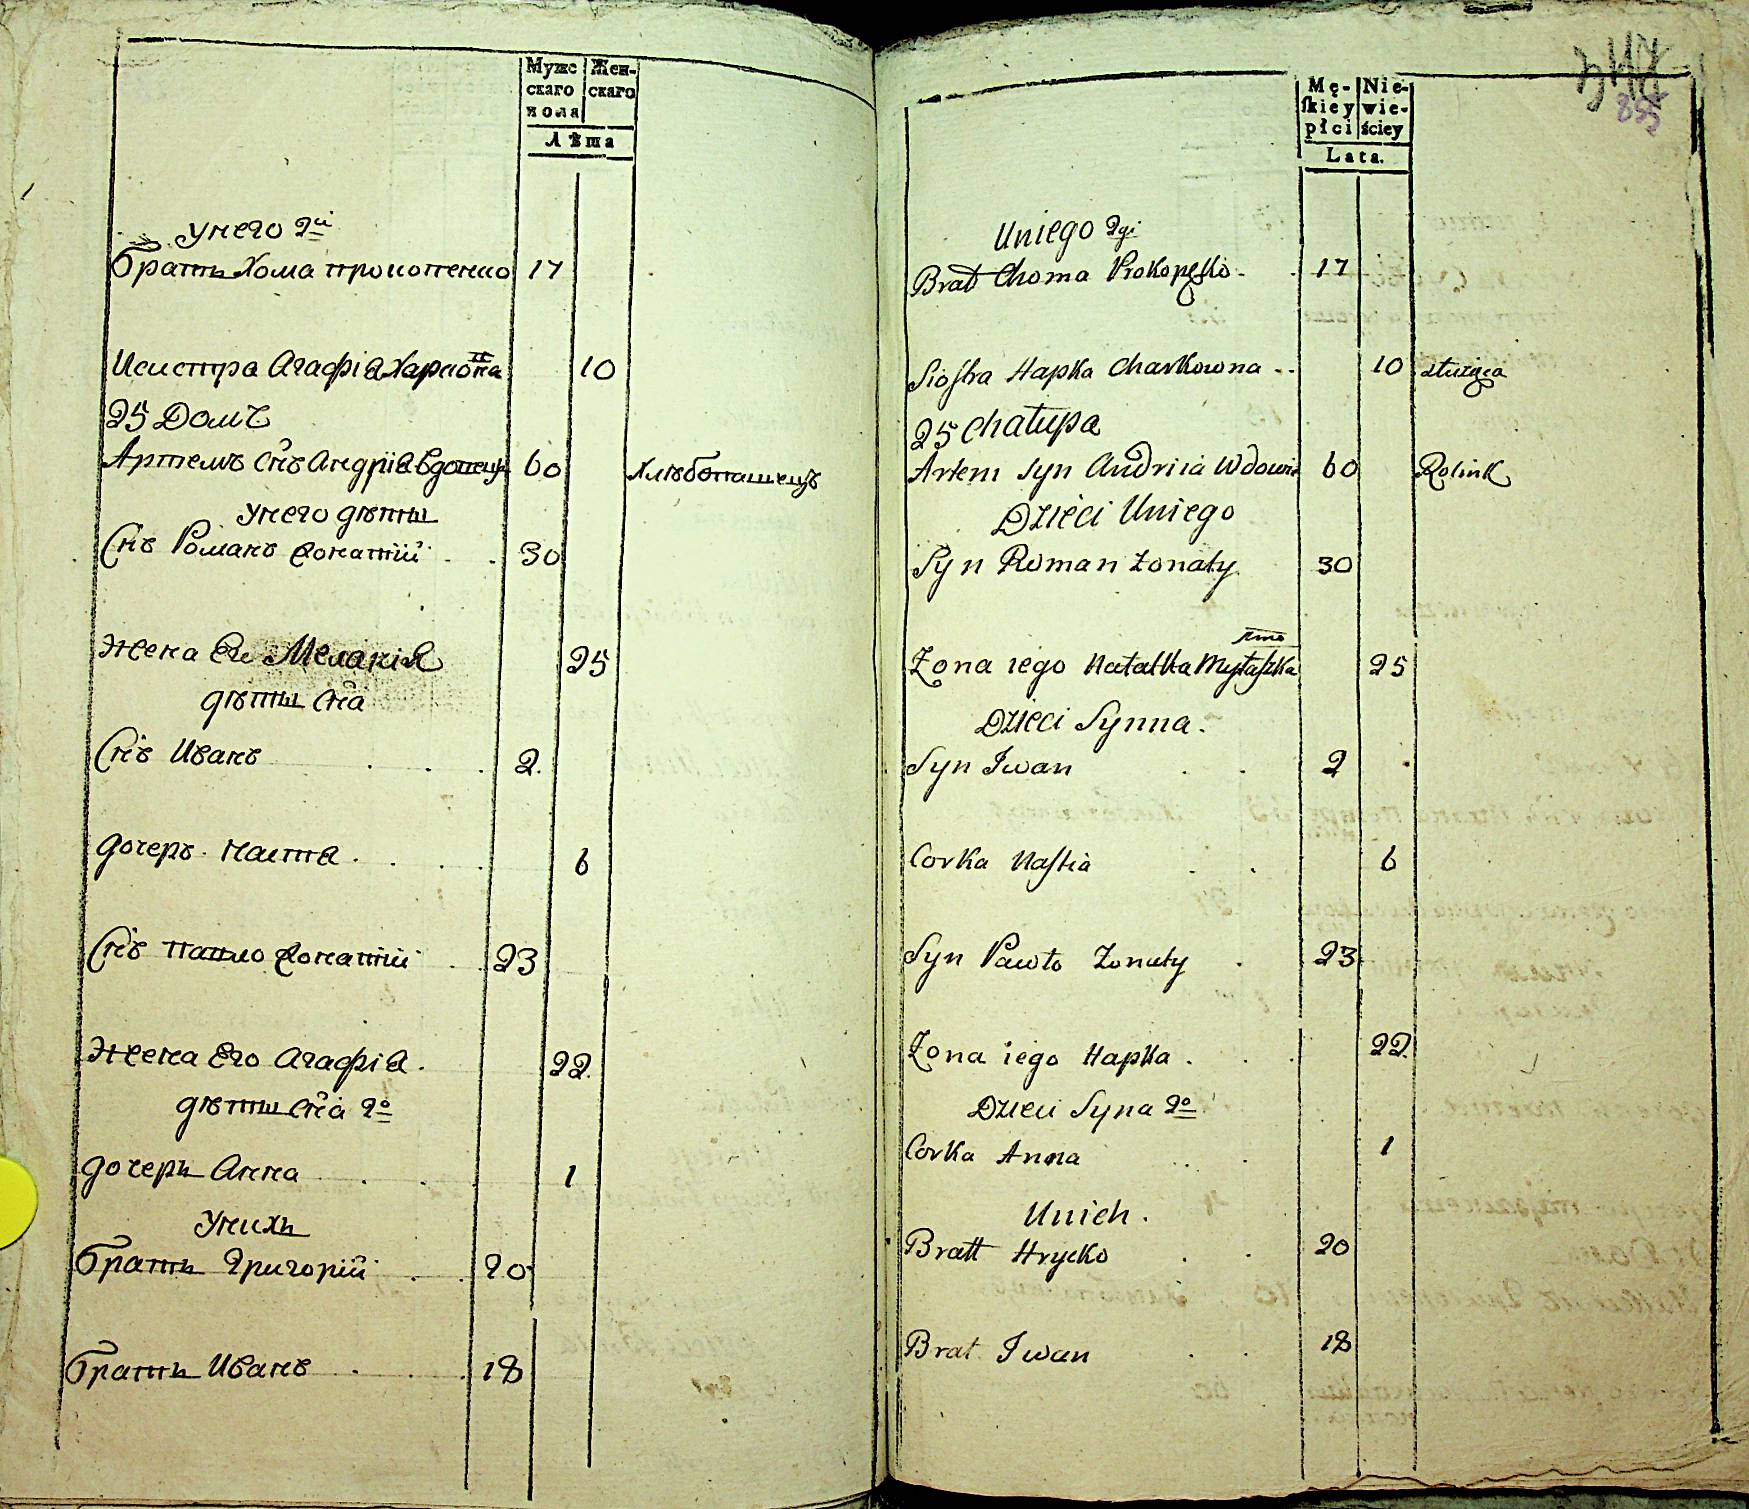 Мужс Жен-
скаго скаго
пола
Лѣта
Унего 2ги
братъ Хома прокопенко 17
Исистра Агафіа Харко 10
25 Домъ
Артемъ Снъ Андріа Вдовецъ 60 Хлѣбопашецъ
Унего дѣты
Снъ Романъ Жонатій 30
Жена Ег Меланіа 25
дѣты Сна
Снъ Иванъ 2
дочеръ настя 6
Снъ павло Жонатій 23
Жена Его Агафіа 22
дѣты Сна 2о
дочеръ Анна 1
Унихъ
братъ Григорій 20
братъ Иванъ 18
Mę- Nie-
ſkiey wie-
płci ściey
Lata.
Uniego 2gi
Brat Choma Prokopęſko 17
Sioſtra Hapka Charkowna 10 służąca
25 Chałupa
Artem Syn Andriia Wdowie 60 Rolink
Dzieci Uniego
Syn Roman żonaty 30
Żona iego Natalka 25
Dzieci Synna
Syn Iwan 2
Corka Naſtia 6
Syn Pawło Żonaty 23
Żona iego Hapka 22
Dzieci Syna 2o
Corka Anna 1
Unich
Bratt Hrycko 20
Brat Iwan 18